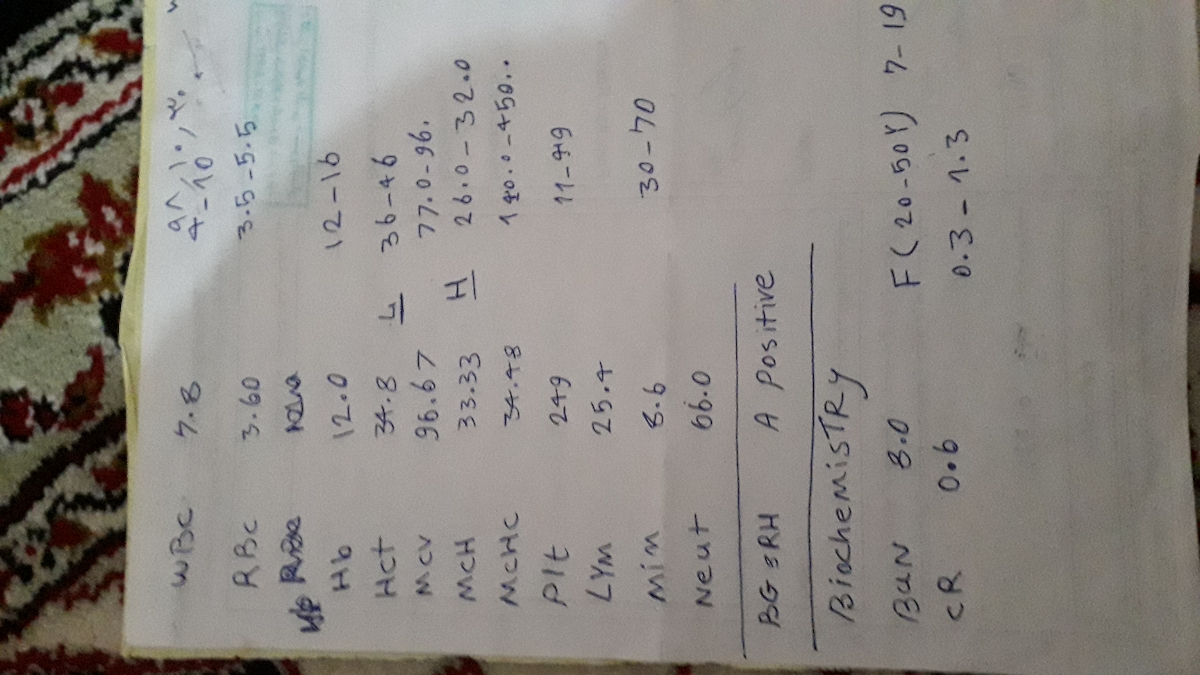 WBC 4-10
RBC 3.60 3.5-5.5
Hb 12.0 12-16
Hct 34.8 L 36-46
MCV 96.67 77.0-96.
MCH 33.33 H 26.0-32.0
MCHC 34.48 140.0-450..
Plt 249 11-49
LYM 25.4
Mim 8.6 30-70
Neut 66.0
BG & RH A Positive
BiochemisTRy
BUN 8.0 F(20-50Y) 7-19
CR 0.6 0.3-1.3